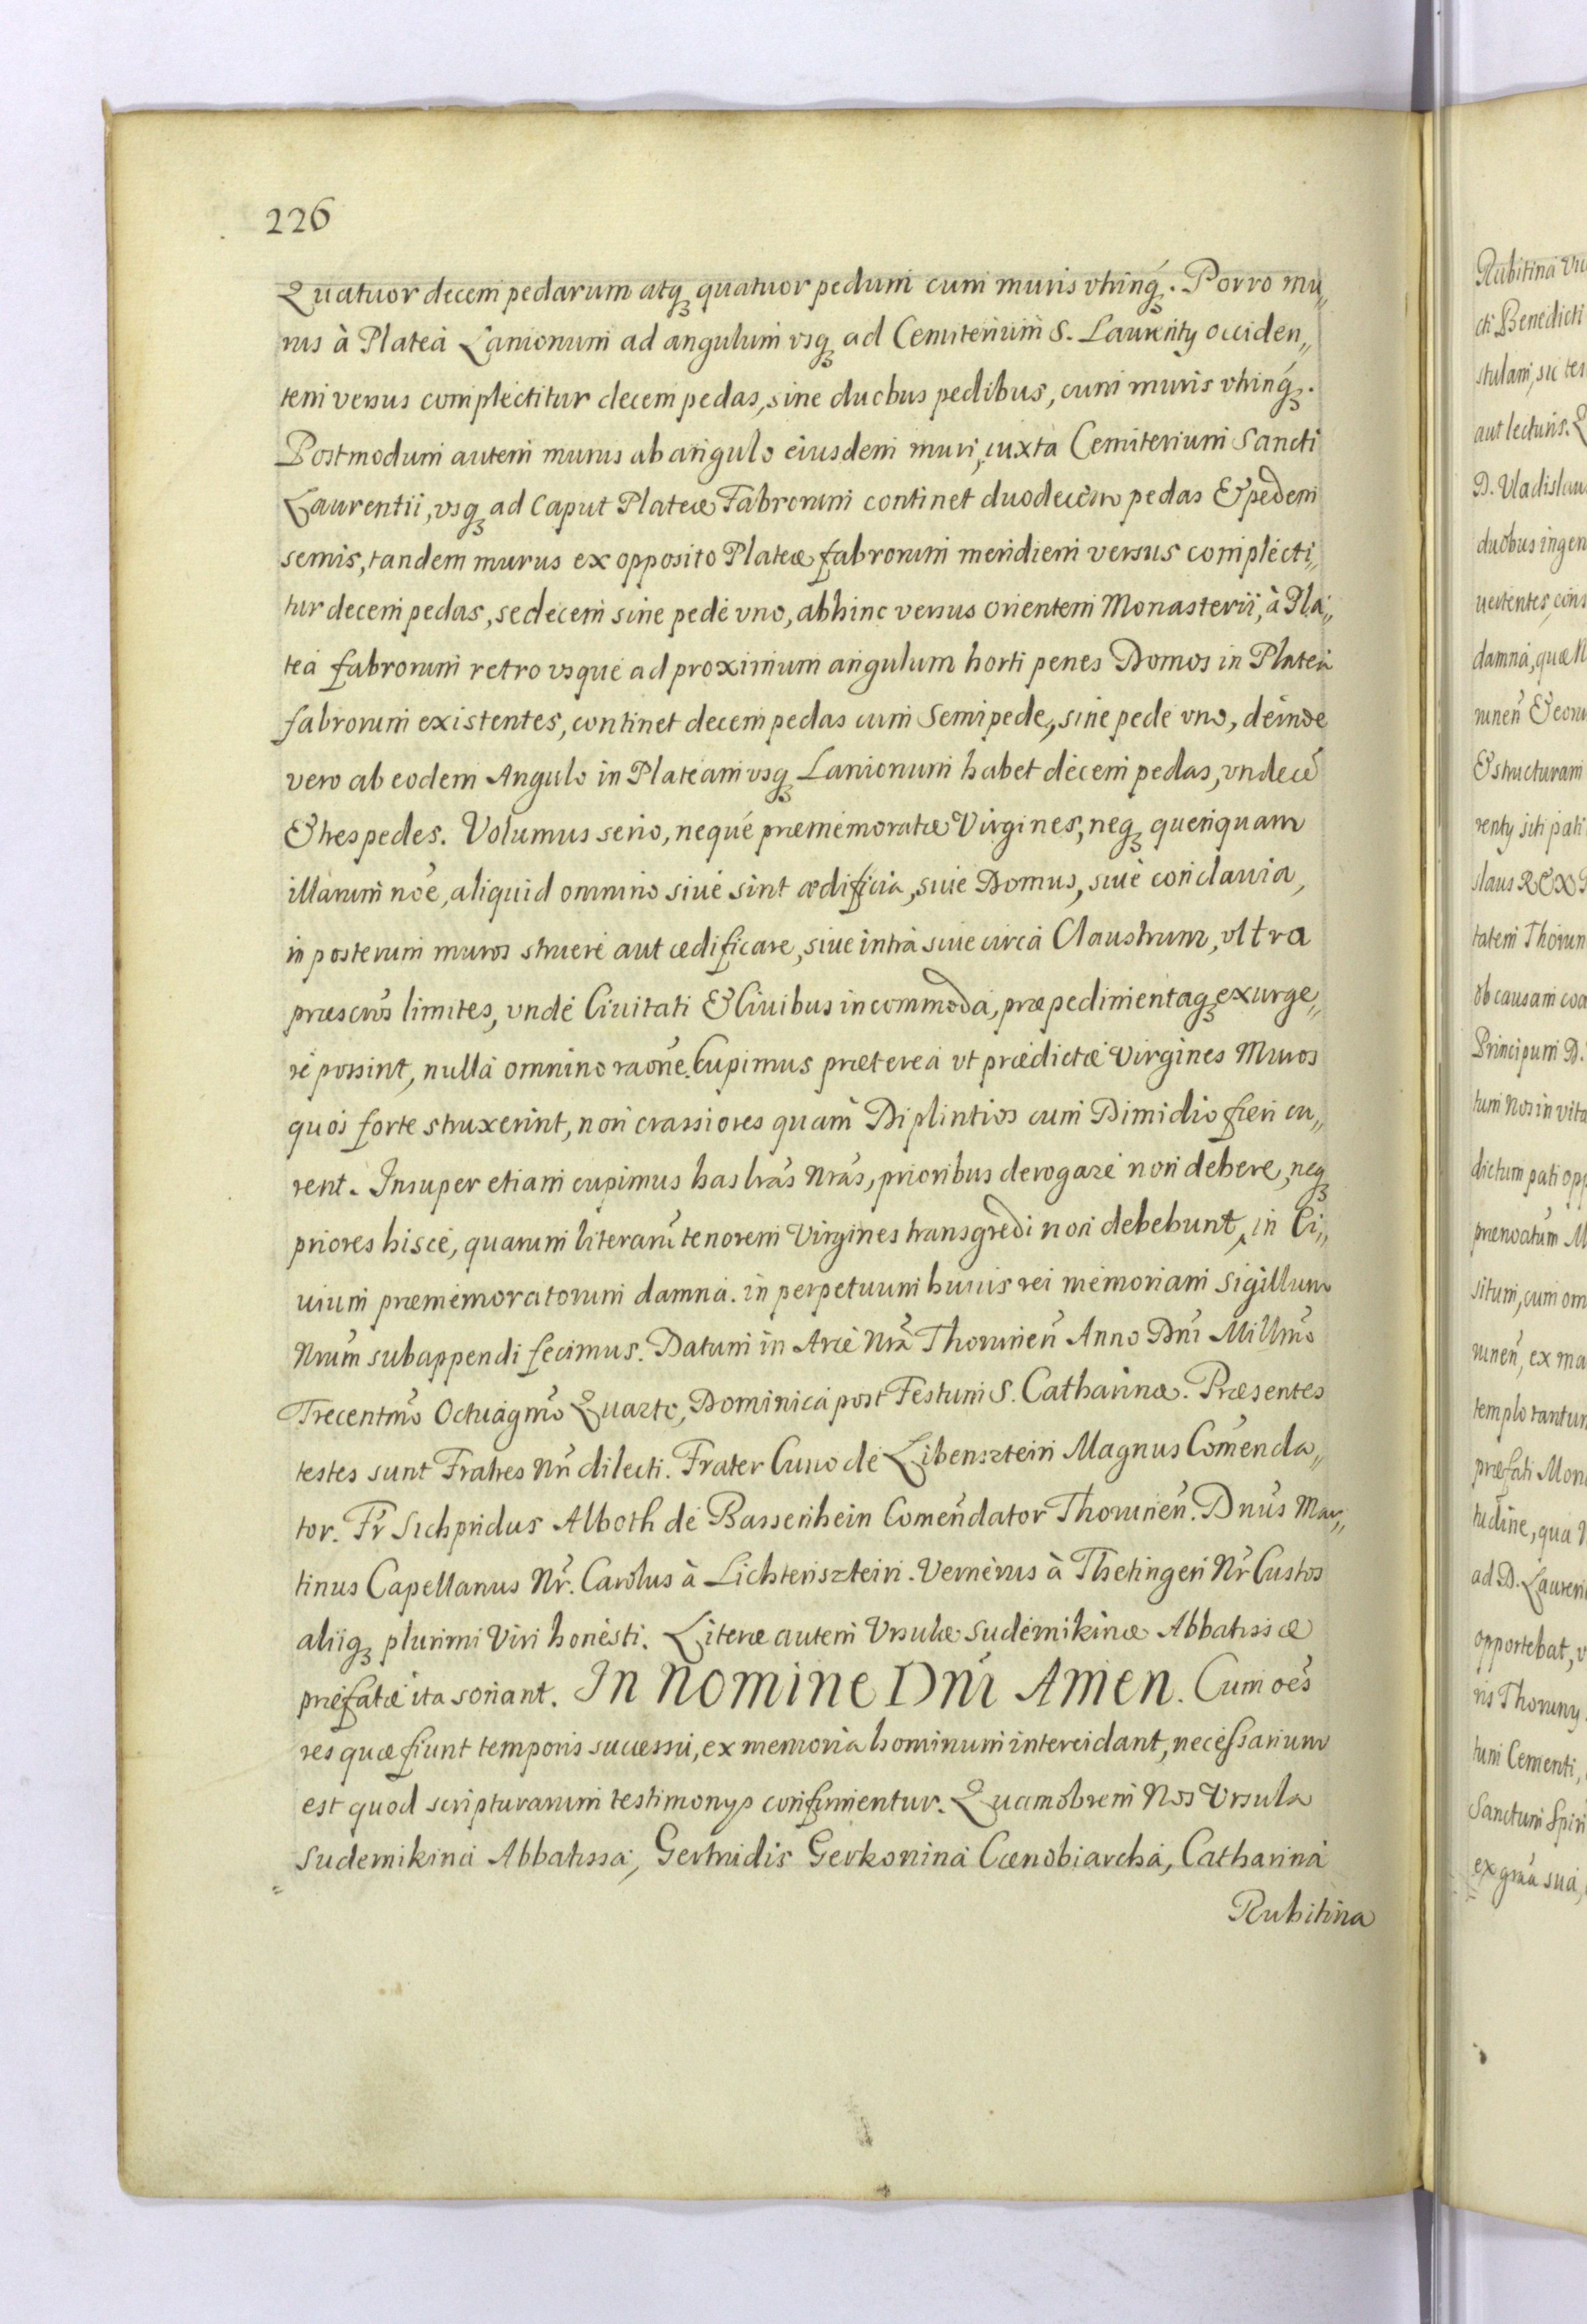 226
Quatuor decem pedarum atq quatuor pedum cum muris vtrinq. Porro mu„
rus à Plateà Lanionum ad angulum vsq ad Cemiterium S. Laurenty occiden„
tem versus complectitur decem pedas, sine duobus pedibus, cum muris vtrinq.
Postmodum autem murus ab angulo eiusdem muri, iuxta Cemiterium Sancti
Laurentii, vsq ad Caput Plateæ Fabrorum continet duodecim pedas & pedem
semis, tandem murus ex opposito Plateæ fabrorum meridiem versus complecti„
tur decem pedas, sedecem sine pede vno, abhinc versus orientem Monasterii, à Pla„
tea fabrorum retro vsque ad proximum angulum horti penes Domos in Plateà
fabrorum existentes, continet decem pedas cum Semipede, sine pede vno, deinde
vero ab eodem Angulo in Plateam vsq Lanionum habet decem pedas, vndecē
& tres pedes. Volumus serio, neque præmemoratæ Virgines, neq quenquam
illarum noē, aliquid omnino siue sint ædificia, siue Domus, siue conclauia,
in posterum muros struere aut ædificare, siue intrà siue circà Claustrum, vltra
præscrōs limites, vnde Ciuitati & Ciuibus incommoda, præpedimentaq exurge„
re possint, nulla omnino raōne. Cupimus præterea vt prædictæ Virgines Muros
quos forte struxerint, non crassiores quam Diplintios cum Dimidio fieri cu„
rent. Insuper etiam cupimus has lrās nrās, prioribus derogare non debere, neq
priores hisce, quarum literarū tenorem Virgines transgredi non debebunt, in Ci„
uium præmemoratorum damna. in perpetuum huius rei memoriam Sigillum
Nrūm subappendi fecimus. Datum in Arce Nrā Thorunen̄ Anno Dnī Millmō
Trecentmō Octuagmō Quarto, Dominica post Festum S. Catharinæ. Præsentes
testes sunt Fratres Nrī dilecti. Frater Cuno de Libensztein Magnus Comēnda„
tor. Fr̄ Sichpridus Alboth de Bassenhein Comēndator Thorunen̄. Dnūs Mar„
tinus Capellanus Nr̄. Carolus à Lichtensztein. Vernerus à Thetingen Nr̄ Custos
aliiq plurimi Viri honesti. Literæ autem Vrsulæ Sudemikinæ Abbatissæ
præfatæ ita sonant. In Nomine Dnī Amen. Cum oēs
res quæ fiunt temporis sucessu, ex memoria hominum intercidant, necessarium
est quod scripturarum testimonys confirmentur. Quamobrem Nos Vrsula
Sudemikina Abbatissa, Gertrudis Gerkonina Cœnobiarcha, Catharina
Rubitina